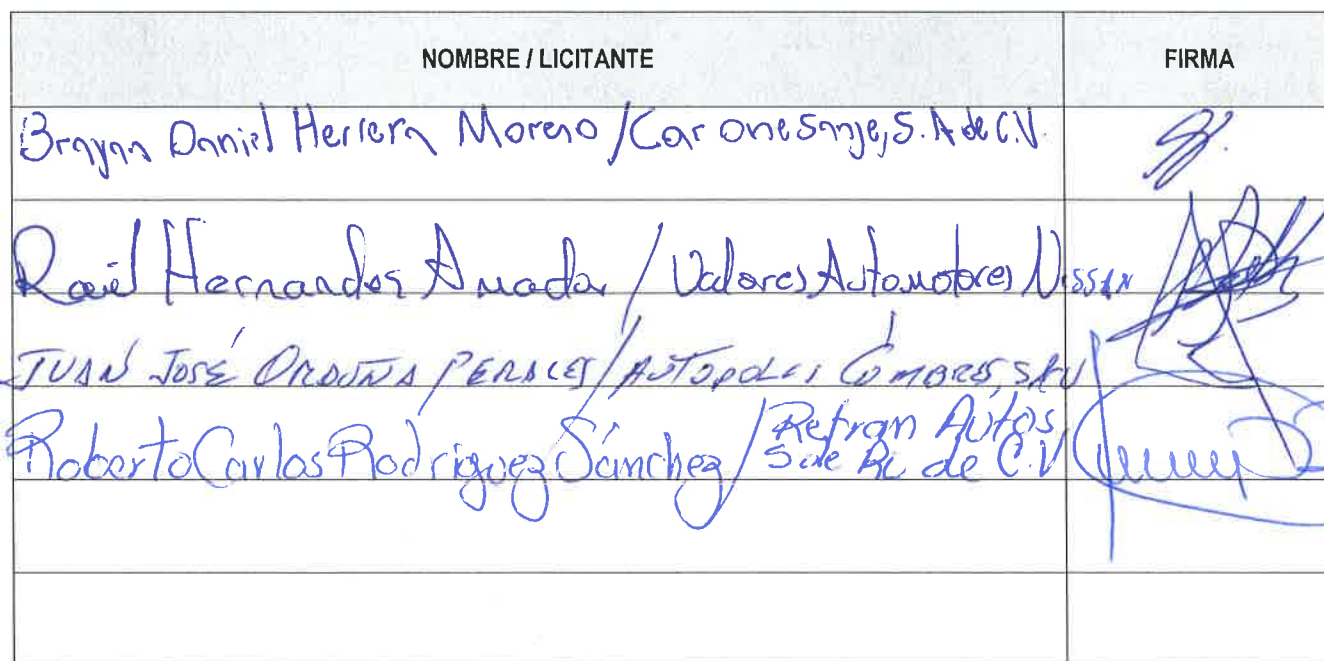 NOMBRE / LICITANTE FIRMA
Brayan Daniel Herrera Moreno / Car One S.A de C.V.
Raúl Hernandez Amador / Valores Automotores Nissan
JUAN JOSÉ ORDUÑA PERALES / AUTOPOLIS CUMBRES, S
Roberto Carlos Rodriguez Sánchez / Refran Autos
S de RL de C.V